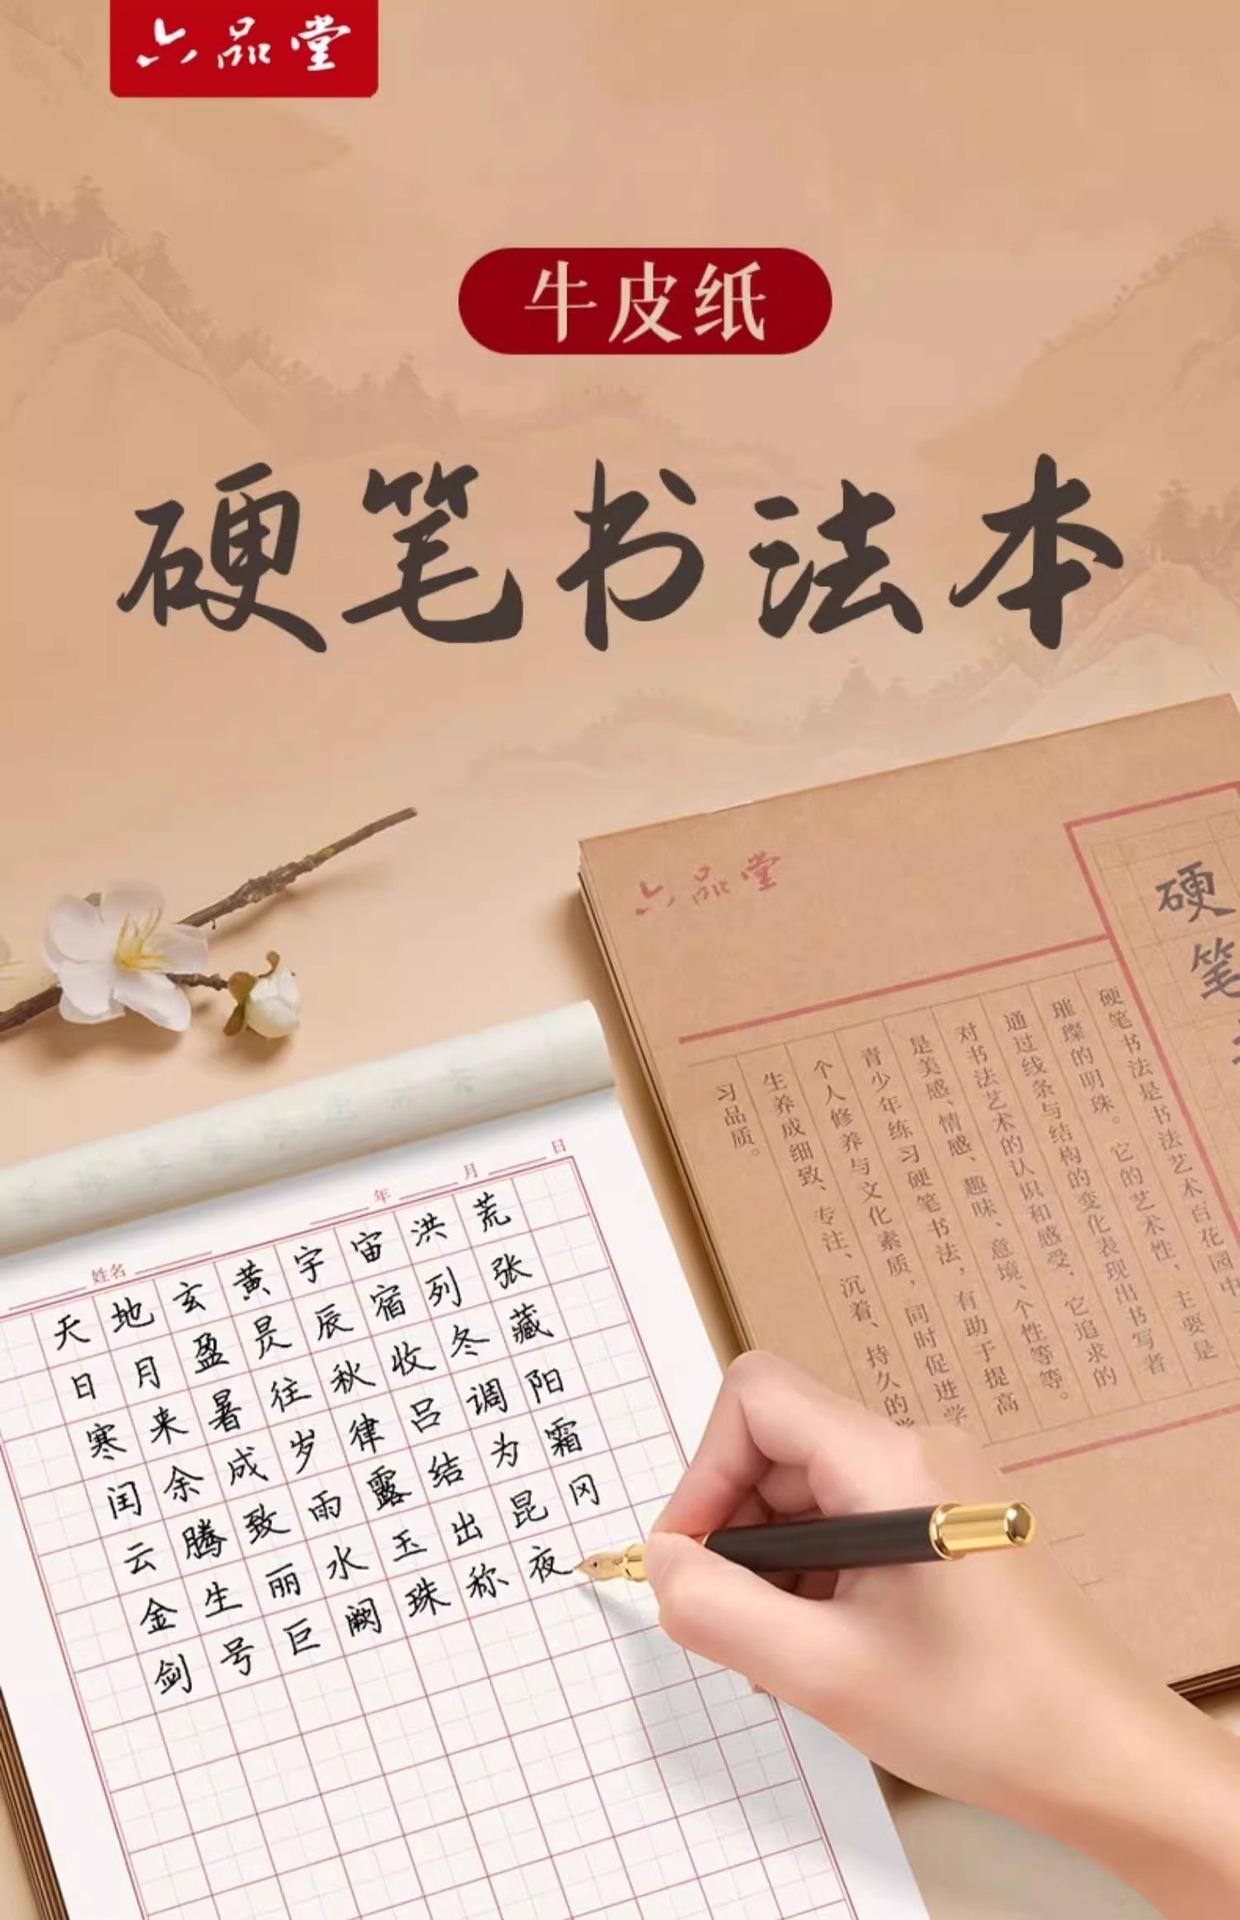 六品堂
牛皮纸
硬笔书法本
六品堂
硬笔
硬笔书法是书法艺术百花园中
璀璨的明珠。它的艺术性，主要是
通过线条与结构的变化表现出书写者
对书法艺术的认识和感受，它追求的
是美感、情感、趣味、意境、个性等等。
青少年练习硬笔书法，有助于提高
个人修养与文化素质，同时促进学
生养成细致、专注、沉着、持久的学
习品质。
姓名 年 月 日
天地玄黄宇宙洪荒
日月盈昃辰宿列张
寒来暑往秋收冬藏
闰余成岁律吕调阳
云腾致雨露结为霜
金生丽水玉出昆冈
剑号巨阙珠称夜